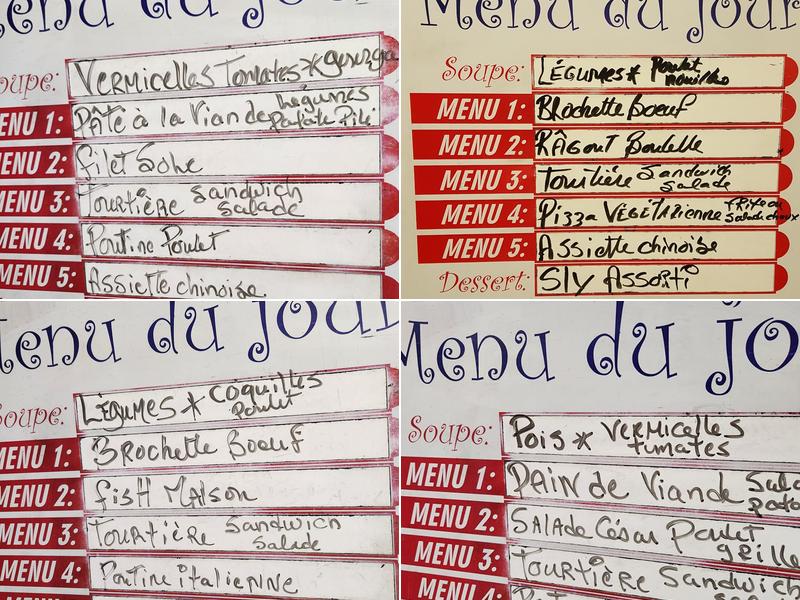 Menu du jour
Soupe: Vermicelles Tomates *
MENU 1: Pâté à la Viande légumes
Patate Pilé
MENU 2: filet Sole
MENU 3: Tourtière Sandwich
Salade
MENU 4: Poutine Poulet
MENU 5: Assiette chinoise
Menu du jour
Soupe: LÉGUMES * Poulet
nouilles
MENU 1: Brochette Boeuf
MENU 2: RÂGOUT Boulette
MENU 3: Tourtière Sandwich
Salade
MENU 4: Pizza VÉGÉTARIENNE + frite ou
Salade choux
MENU 5: Assiette chinoise
Dessert: Sly Assorti
Menu du jour
Soupe: LÉGUMES * Coquilles
Poulet
MENU 1: Brochette Boeuf
MENU 2: fisH Maison
MENU 3: Tourtière Sandwich
Salade
MENU 4: Poutine italieNNe
Menu du jo
Soupe: Pois * Vermicelles
tumates
MENU 1: PAIN de Viande Sala
pata
MENU 2: SALADE César Poulet
grille
MENU 3: TOURTIÈRE Sandwich
MENU 4: